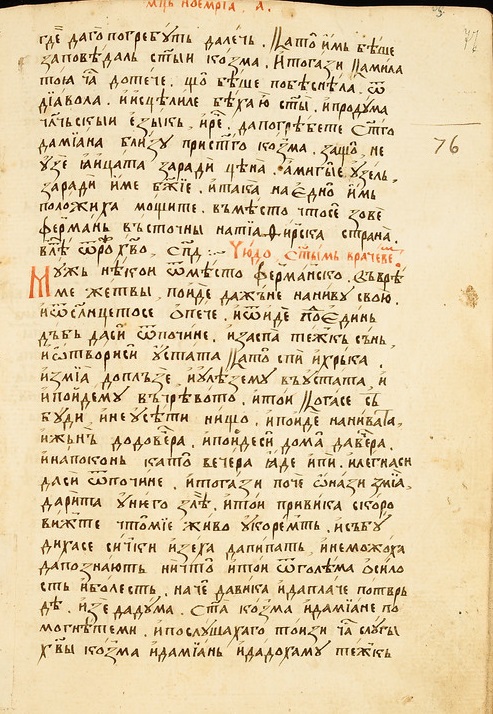 мц҃ь ноемрїа . а҃ .
где даго погребꙋть далечь . като имь беше
заповедаль ст҃ыи козма . и тогази камила
тога ча дотече . що беше побеснела . ѿ
дїавола . и исцелиле беха ю ст҃ы . и продꙋма
чл҃чьскыи езыкь , и рече . да погребете ст҃го
дамїана близꙋ при ст҃го козма . защо не
ꙋзе яицата заради цена . ами гы ꙋзель ,
заради име бж҃їе . и така на едно имь
положиха мощите . вьместо что се зове
фермань вьсточны на тїа сирска страна .
влѣ ѿ рожⷣ хв҃о , спⷣ
чюдо ст҃ымь врачеве
Мꙋжь некои ѿ место ферманско . вьвре
ме жетвы , поиде да жьне на нивꙋ свою .
и ѿ слнцето се опече . и ѿиде по единь
дꙋбь да си ѿпочине . и заспа тежкь сьнь ,
и отвори си ꙋстата като спи и хрька .
и змїа допльзе , и ꙋлезе мꙋ вь ꙋстата , и
и поиде мꙋ вь чревото . и тои когасе сь
бꙋди , и не ꙋсети нищо . и поиде на ниватїа ,
и жьнь до довера . и поиде си дома да вера .
и напоконь като вечера яде и пи . и легна си
да си ѿпочине . и тогази поче ѡнази змїа ,
дари та ꙋ него зле . и тои привика скоро
вижте что ми е живо ꙋкоремть . и сьбꙋ
диха се сички и зеха да питать , и не можоха
да познають ничто . и тои ѿ голема ѡсило
сть и болесть , наче да вика и да плаче по тврь
де . и зе да дꙋма . ст҃а козма и дамїане по
могнете ми . и послꙋшаха го тоизи ча слꙋгы
хв҃ы козма и дамїань и дадоха мꙋ тежкь
76